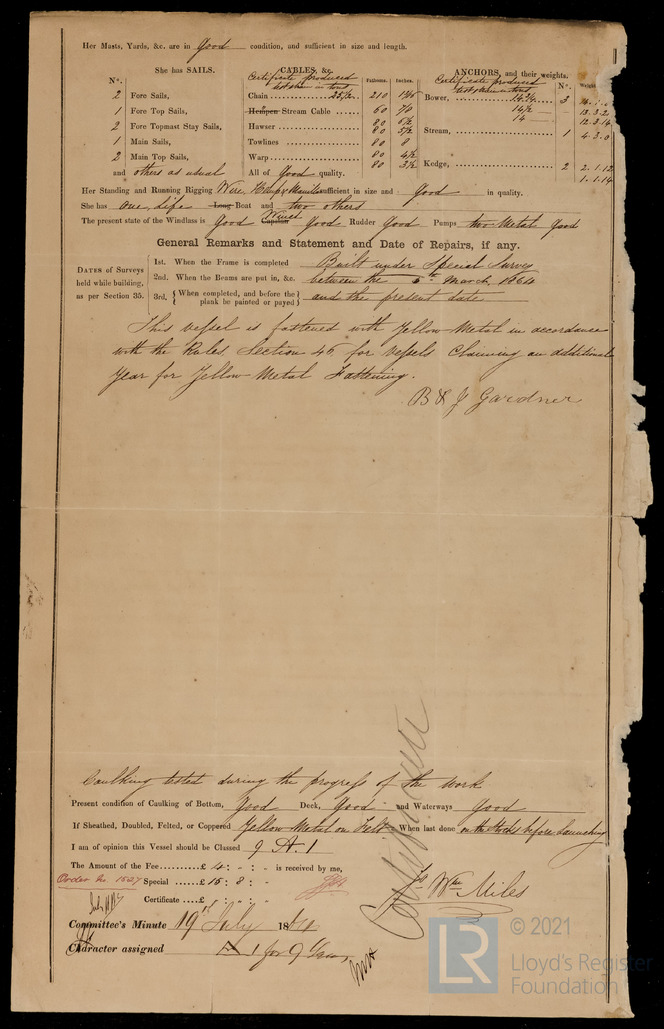 Her Masts, Yards, &c. are in Good condition, and sufficient in size and length.
She has SAILS.
CABLES, &c.
ANCHORS, and their weights.
Certificate produced
Certificate produced
Nº.
Fathoms.
Inches.
Nº.
Weight
2 Fore Sails,
1 Fore Top Sails,
2 Fore Topmast Stay Sails,
1 Main Sails,
2 Main Top Sails,
and others as usual
Chain 210
Hempen Stream Cable 60
Hawser 80
80
Towlines 80 8
Warp 80 4½
80 3½
All of Good quality.
Bower, 3
14½
14
Stream, 1 4.3.0
Kedge, 2 2.1.12
1.1.14
Her Standing and Running Rigging Wire, Hemp & Manilla sufficient in size and Good in quality.
She has one life Long Boat and two others
The present state of the Windlass is Good Capstan Winch Good Rudder Good Pumps two Metal Good
General Remarks and Statement and Date of Repairs, if any.
DATES of Surveys held while building, as per Section 35.
1st. When the Frame is completed Built under Special Survey
2nd. When the Beams are put in, &c. between the 5th March 1864
3rd. {When completed, and before the plank be painted or payed} and the present date
This vessel is fastened with Yellow Metal in accordance
with the Rules Section 45 for vessels Claiming an additional
Year for Yellow Metal Fastening.
B & J Gardner
Caulking tested during the progress of the work
Present condition of Caulking of Bottom, Good Deck, Good and Waterways Good
If Sheathed, Doubled, Felted, or Coppered Yellow Metal on Felt When last done on the Stocks before Launching
I am of opinion this Vessel should be Classed 9 A. 1
The Amount of the Fee £ 4 : - : - is received by me,
Order No 1527 Special £ 15 : 8 : -
Certificate £
Wm Miles
Certificate
Committee's Minute 19th July 18
Character assigned A 1 for 9 Years
© 2021
LR
Lloyd's Register
Foundation